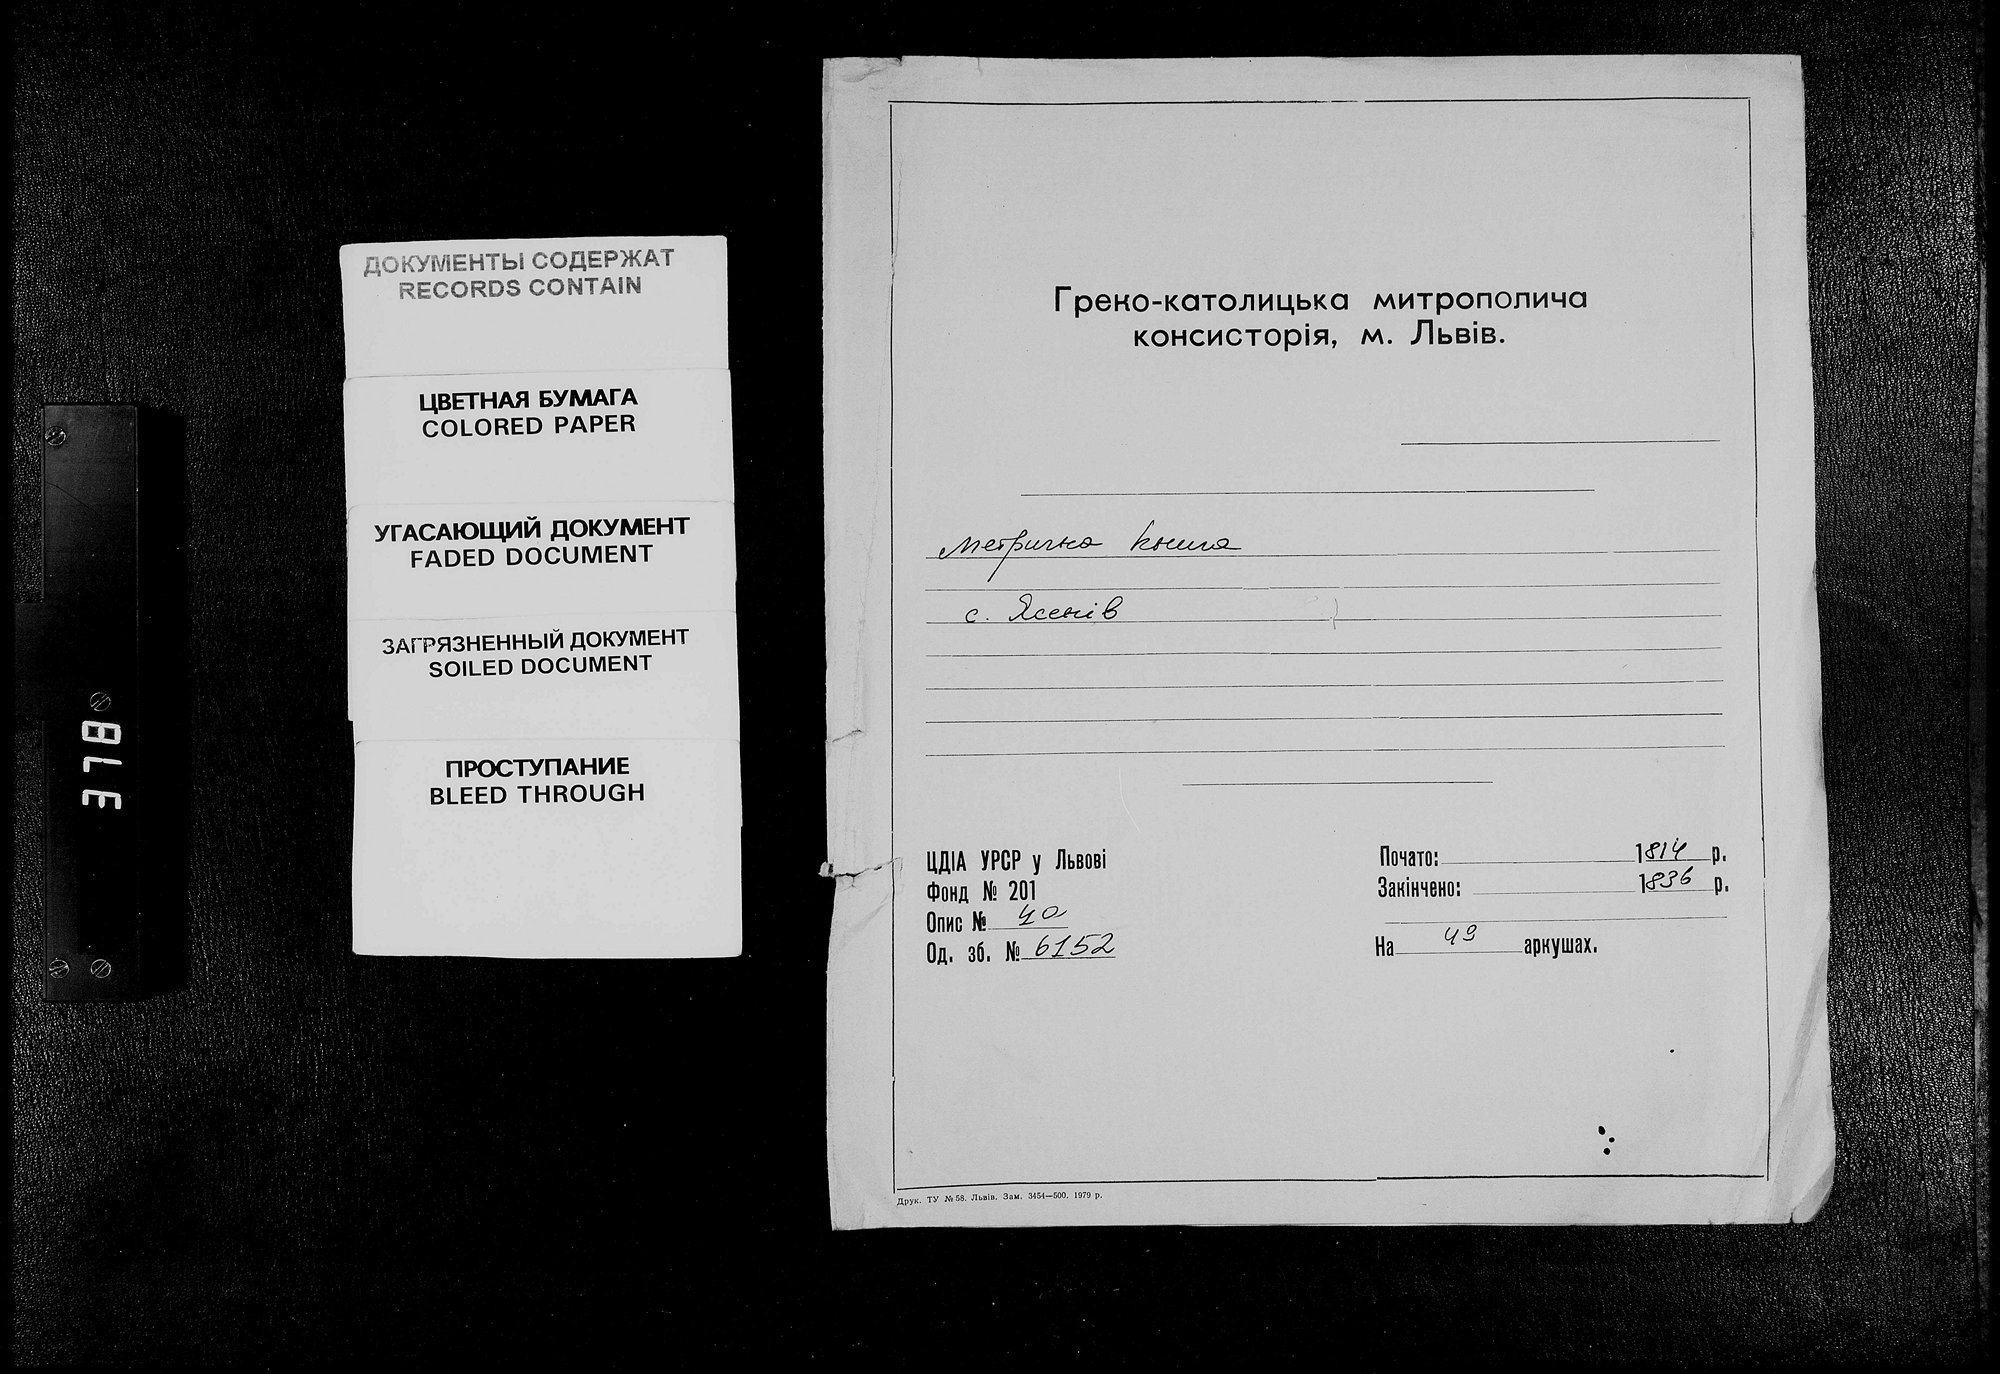 ДОКУМЕНТЫ СОДЕРЖАТ
RECORDS CONTAIN
ЦВЕТНАЯ БУМАГА
COLORED PAPER
УГАСАЮЩИЙ ДОКУМЕНТ
FADED DOCUMENT
ЗАГРЯЗНЕННЫЙ ДОКУМЕНТ
SOILED DOCUMENT
ПРОСТУПАНИЕ
BLEED THROUGH
Греко-католицька митрополича
консисторія, м. Львів.
Метрична книга
с. Ясенів
ЦДІА УРСР у Львові
Фонд № 201
Опис № 4a
Од. зб. № 6152
Почато: 1814 р.
Закінчено: 1836 р.
На 49 аркушах.
Друк. ТУ № 58. Львів. Зам. 3454—500. 1979 р.